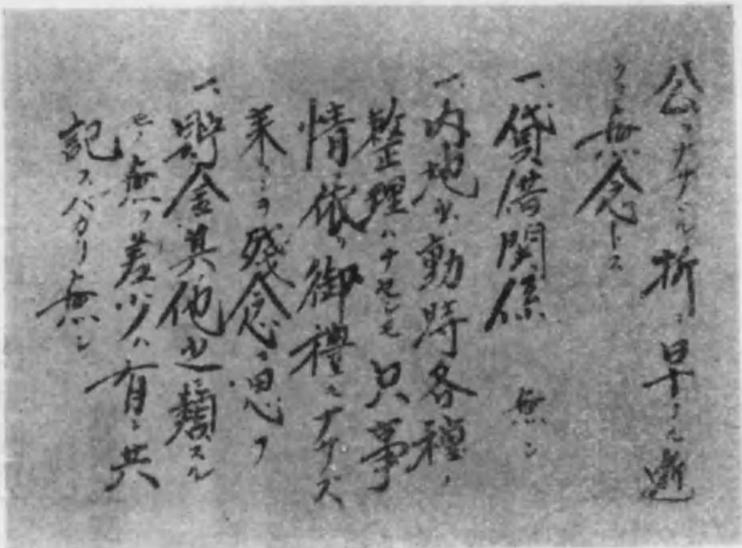 公ニナサニル折ニ早クル逝
クヲ無念トス
一、貸借関係 無シ
一、内地出動時各種ノ
整理ハナセシモ只事
情ニ依リ御禮モナサズ
来シヲ残念ニ思フ
一、貯金其他之ニ類スル
モノ無ク差少ハ有シ共
記スバカリ無シ